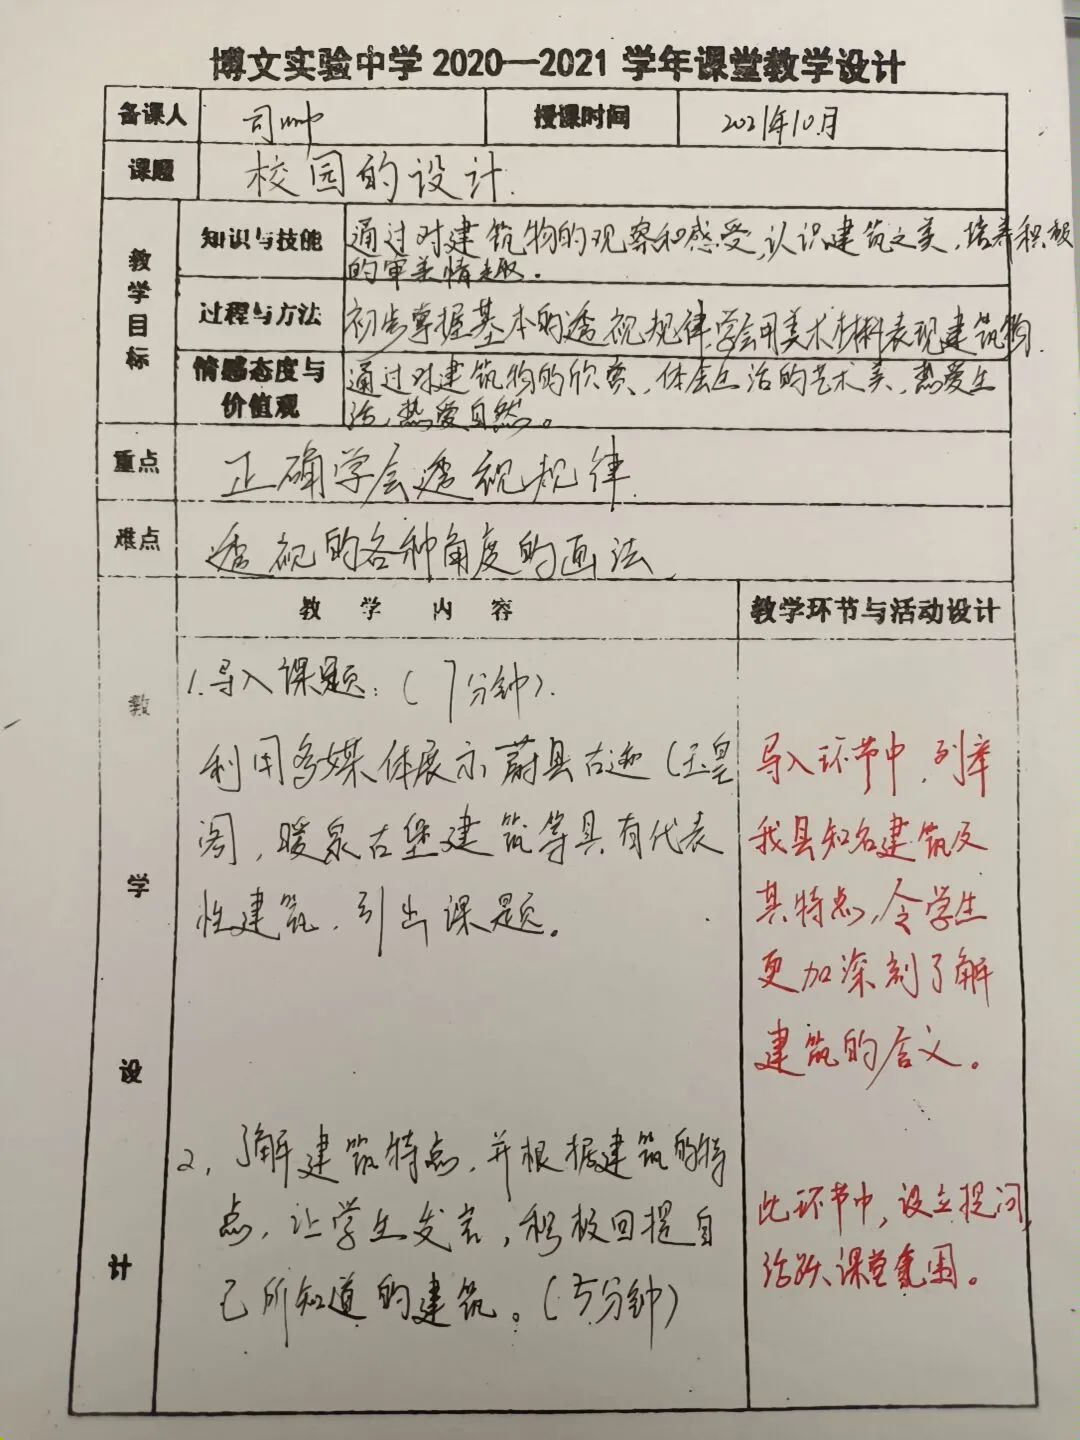 博文实验中学2020—2021学年课堂教学设计
备课人 司 授课时间 2021年10月
课题 校园的设计.
教学目标
知识与技能 通过对建筑物的观察和感受,认识建筑之美,培养积极
的审美情趣.
过程与方法 初步掌握基本的透视规律.学会用美术材料表现建筑物.
情感态度与价值观 通过对建筑物的欣赏、体会生活的艺术美,热爱生
活,热爱自然。
重点 正确学会透视规律.
难点 透视的各种角度的画法.
教学内容 教学环节与活动设计
教学设计
1.导入课题:(7分钟).
利用多媒体展示蔚县古迹(玉皇
阁,暖泉古堡建筑等具有代表
性建筑,引出课题。
导入环节中,列举
我县知名建筑及
其特点,令学生
更加深刻了解
建筑的含义。
2,了解建筑特点,并根据建筑的特
点,让学生发言,积极回提自
己所知道的建筑。(5分钟)
此环节中,设立提问,
活跃课堂氛围。